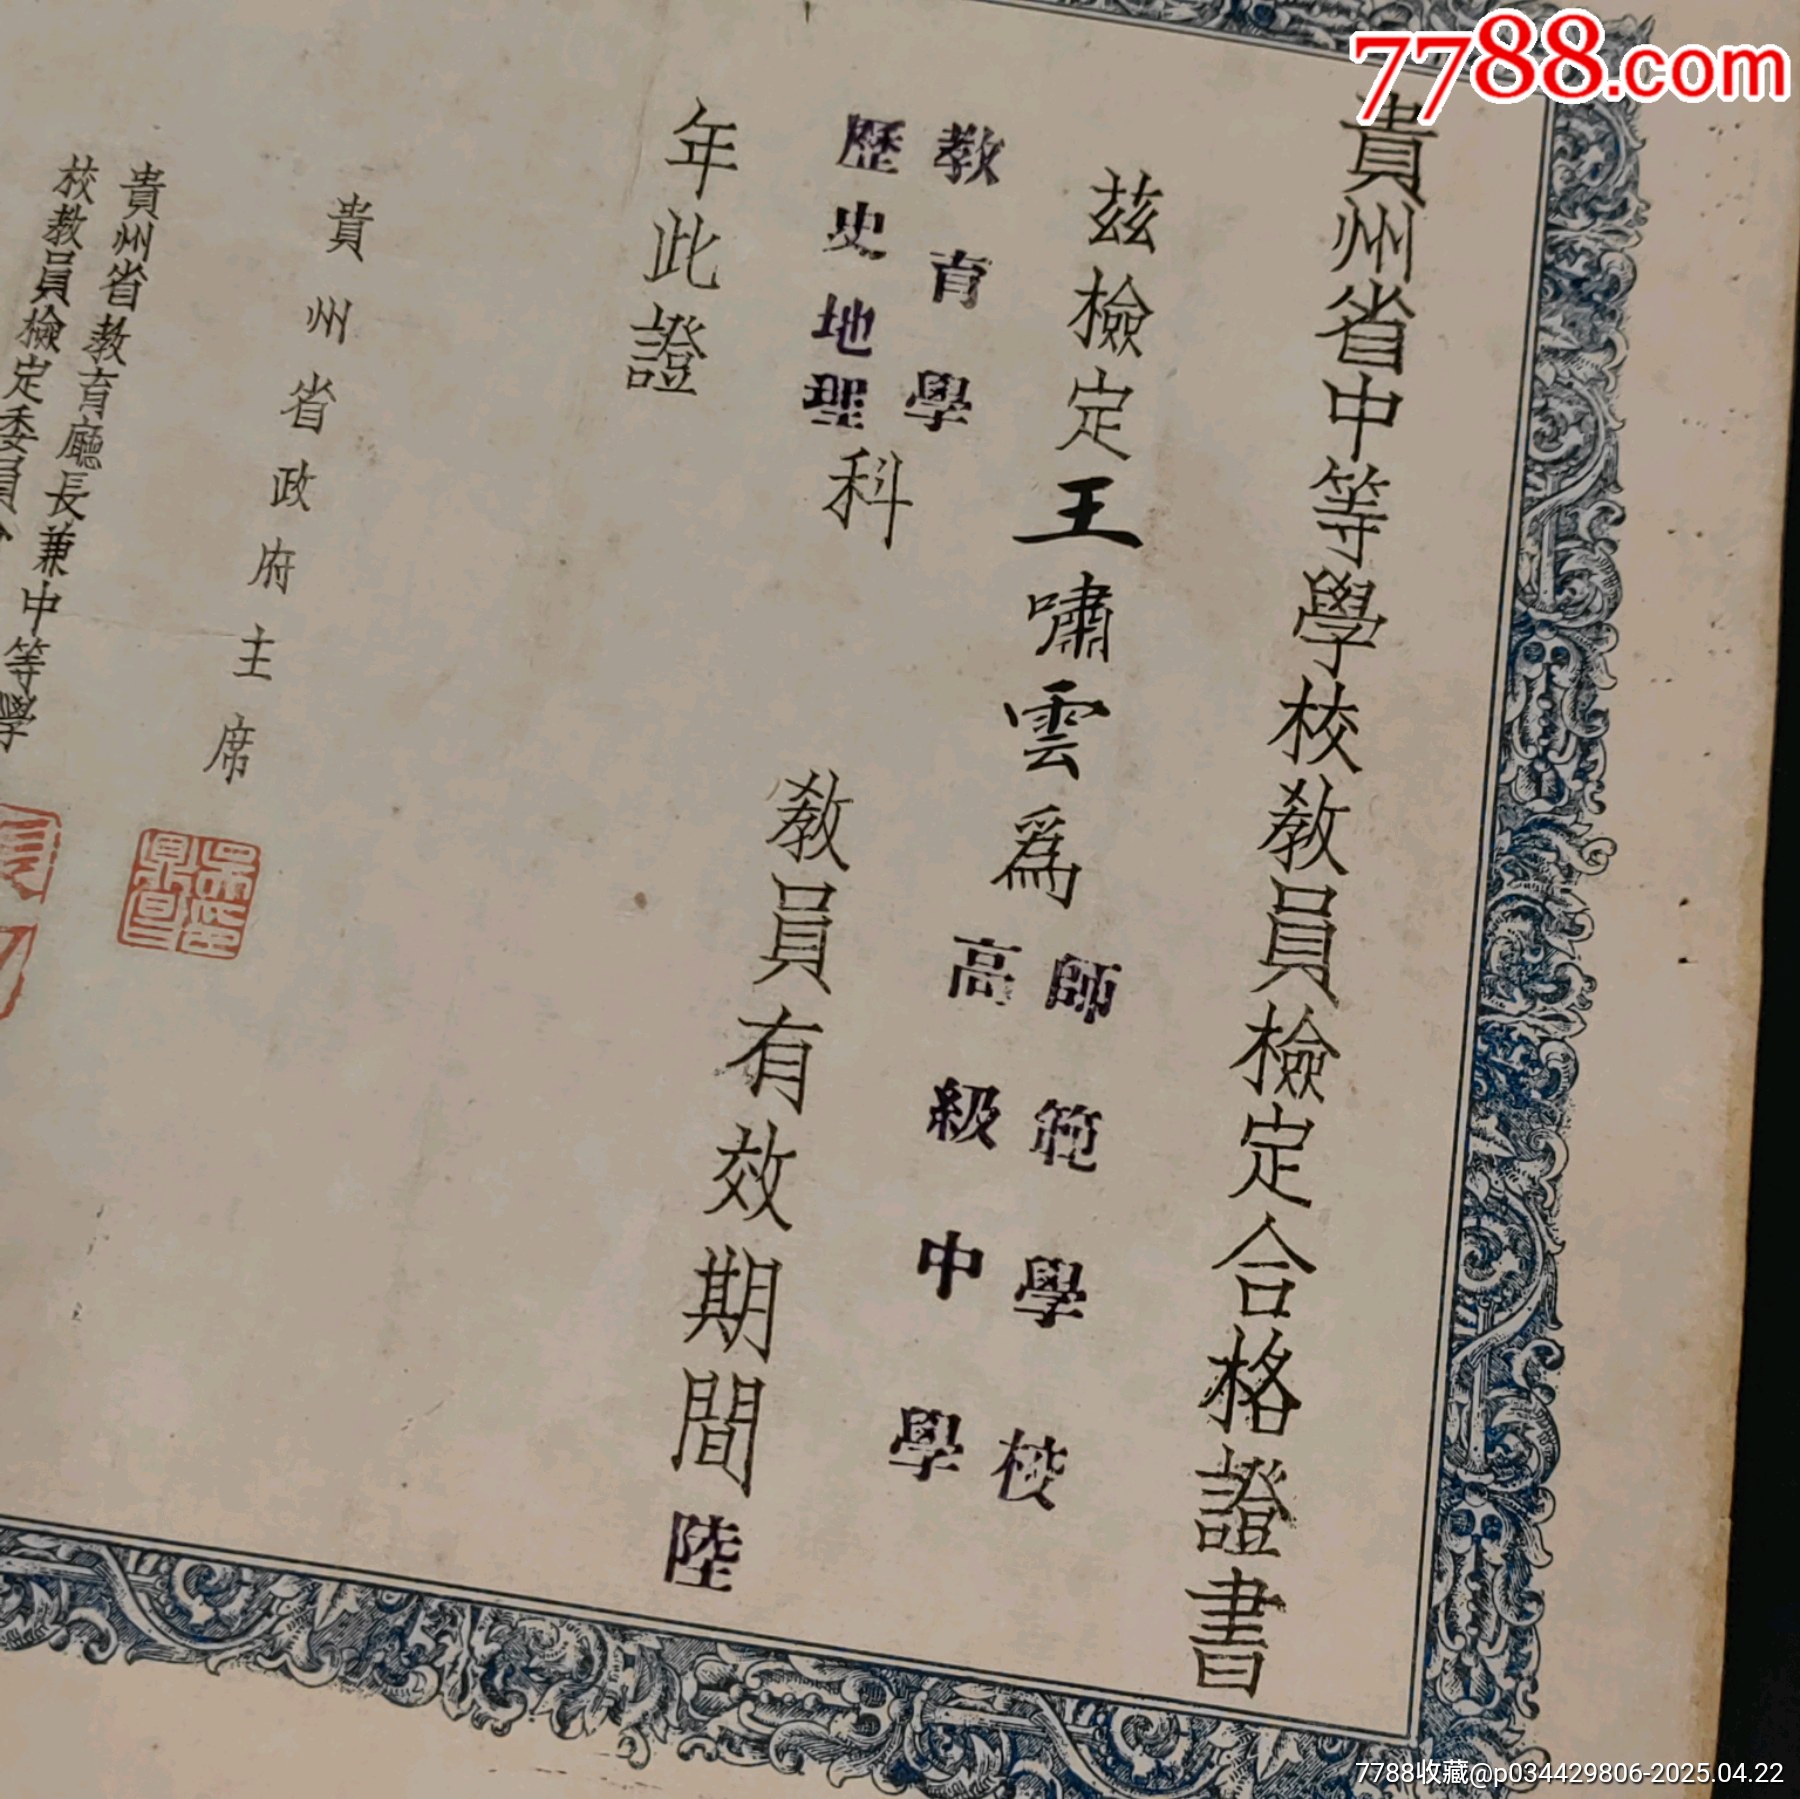 7788.com
貴州省中等學校教員檢定合格證書
茲檢定王嘯雲為
師範學校
高級中學
教育學
歷史地理
科
教員有效期間陸
年此證
貴州省政府主席
吳鼎昌印
貴州省教育廳長兼中等學
校教員檢定委員
7788收藏@p034429806-2025.04.22